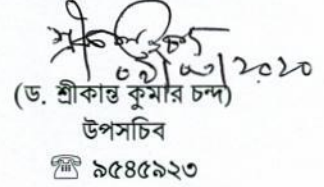 ০৯/০৩/২০২০
(ড. শ্রীকান্ত কুমার চন্দ)
উপসচিব
☎ ৯৫৪৫৯২৩